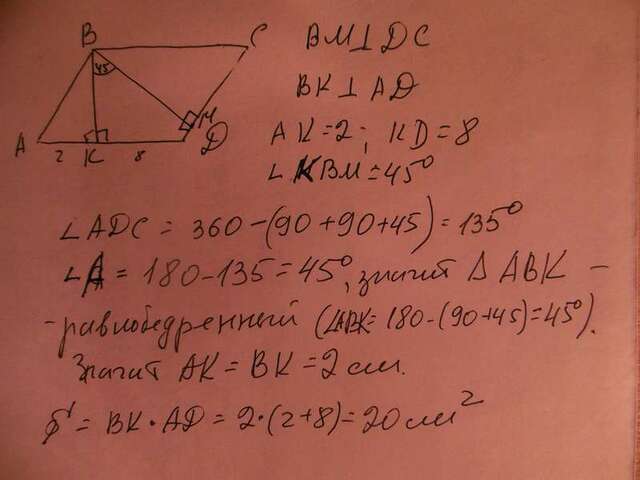 B C
45
A 2 K 8 D M
BM⊥DC
BK⊥AD
AK=2; KD=8
∠KBM=45°
∠ADC = 360-(90+90+45)=135°
∠A = 180-135=45°, значит Δ ABK -
- равнобедренный (∠ABK=180-(90+45)=45°).
Значит AK=BK=2 см.
S = BK·AD=2·(2+8)=20 см²